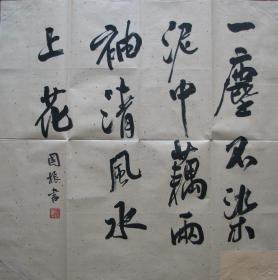 一塵不染
泥中藕兩
袖清風水
上花
國振書